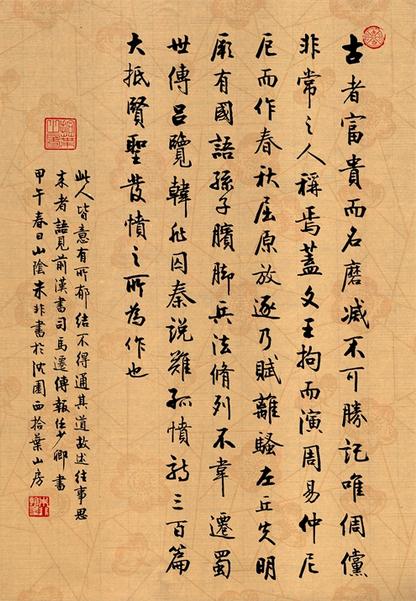 古者富貴而名磨滅不可勝記唯倜儻
非常之人稱焉蓋文王拘而演周易仲尼
厄而作春秋屈原放逐乃賦離騷左丘失明
厥有國語孫子臏腳兵法脩列不韋遷蜀
世傳呂覽韓非囚秦說難孤憤詩三百篇
大抵賢聖發憤之所為作也
此人皆意有所郁結不得通其道故述往事思
来者語見前漢書司馬遷傳報任少卿書
甲午春日山陰非書於沈園西拾葉山房